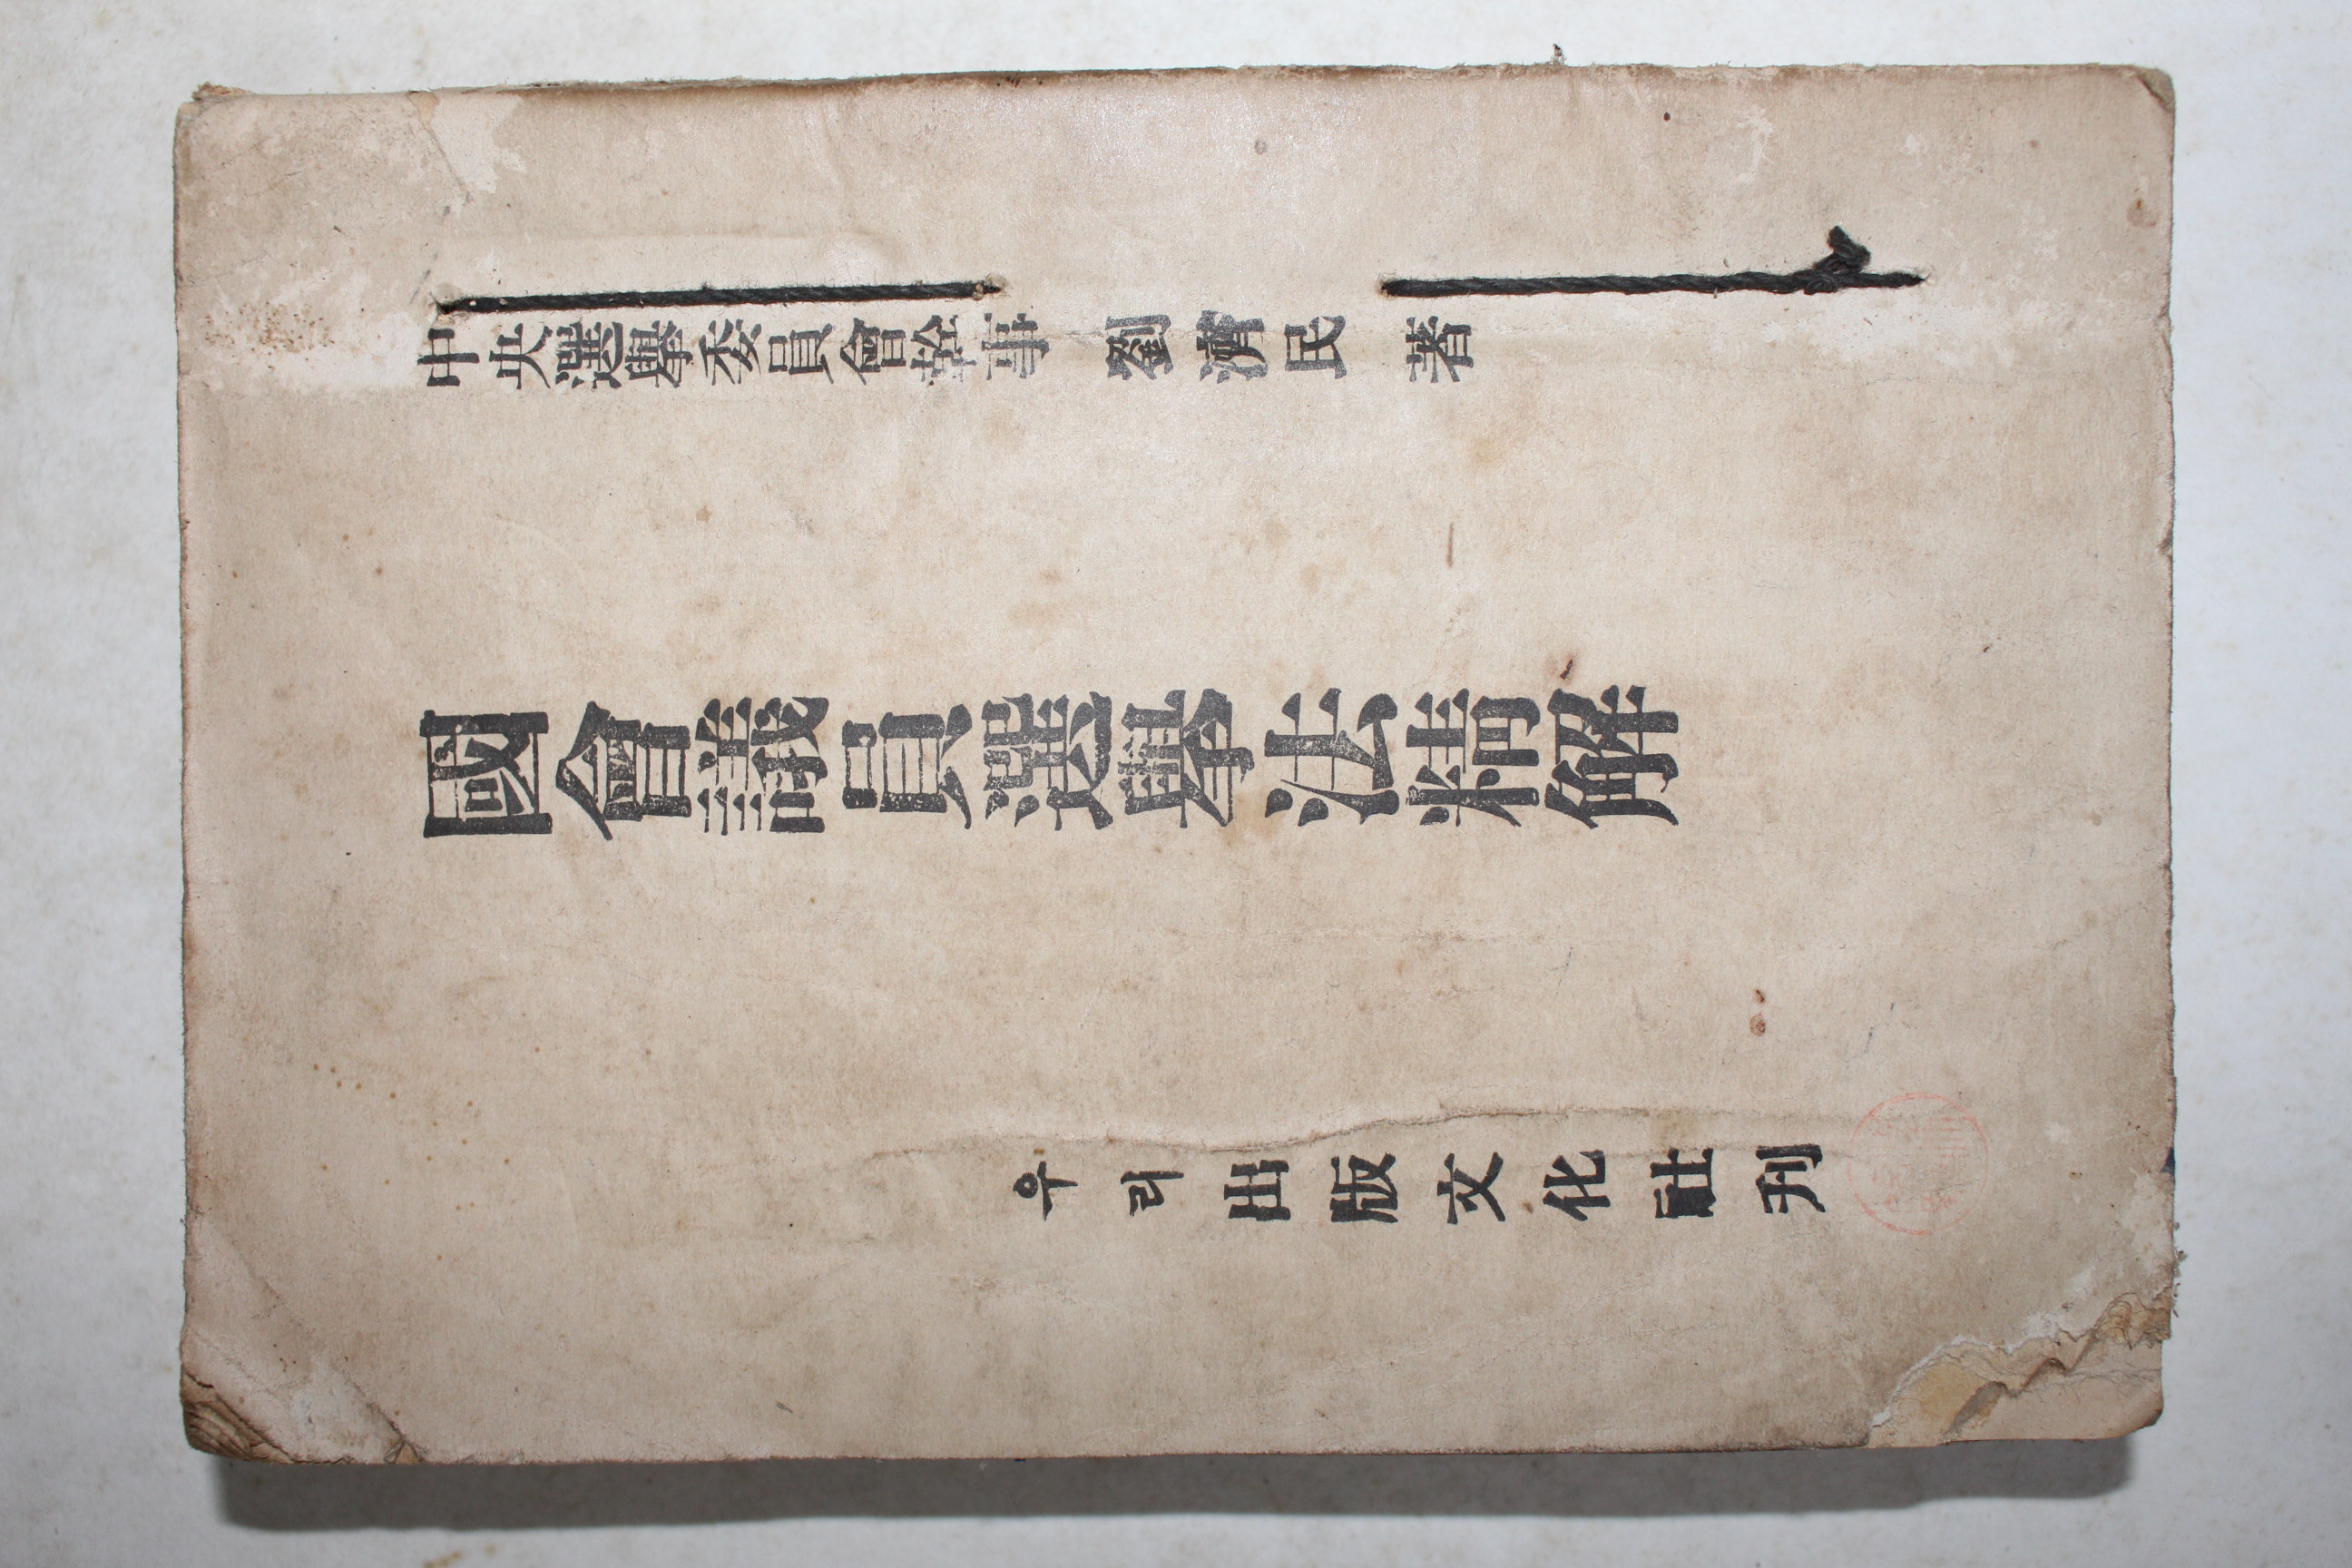 中央選擧委員會幹事 劉濟民 著
國會議員選擧法精解
우리出版文化社刊